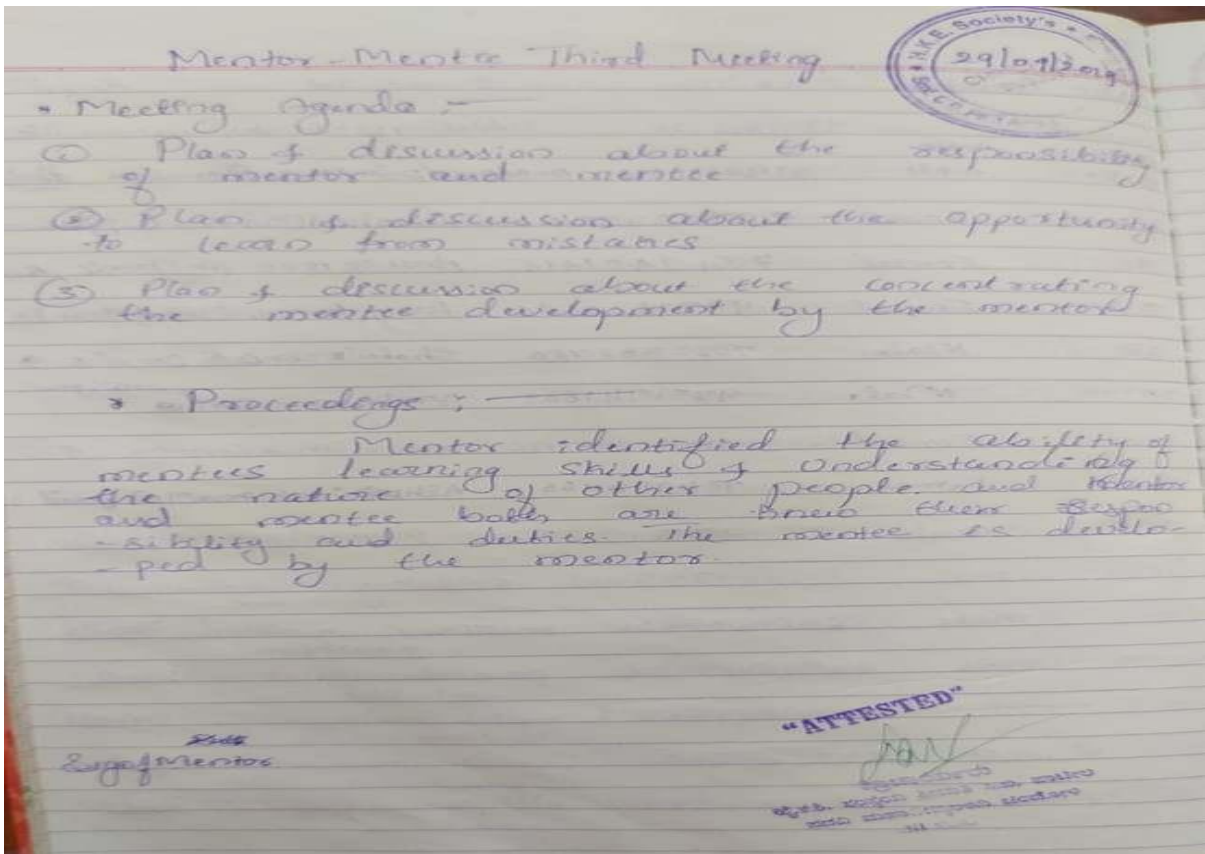 Mentor-Mentee Third Meeting
H.K.E. Society's
29/01/2019
• Meeting Agenda :-
① Plan & discussion about the responsibility
of mentor and mentee
② Plan & discussion about the opportunity
to learn from mistakes
③ Plan & discussion about the concentrating
the mentee development by the mentor
* Proceedings :-
Mentor identified the ability of
mentees learning skills & Understanding
the nature of other people. and Mentor
and mentee both are knew their Respon
-sibility and duties. The mentee is develo-
-ped by the mentor.
"ATTESTED"
Sign of Mentor